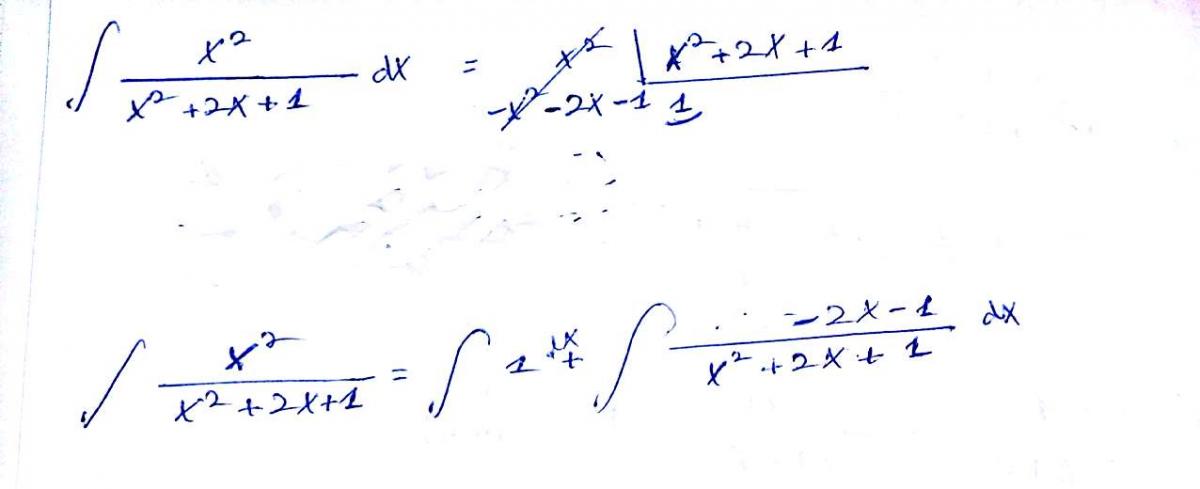 ∫ x²/(x²+2x+1) dx = x² | x²+2x+1
-x²-2x-1 1
∫ x²/(x²+2x+1) = ∫ 1 dx + ∫ (-2x-1)/(x²+2x+1) dx